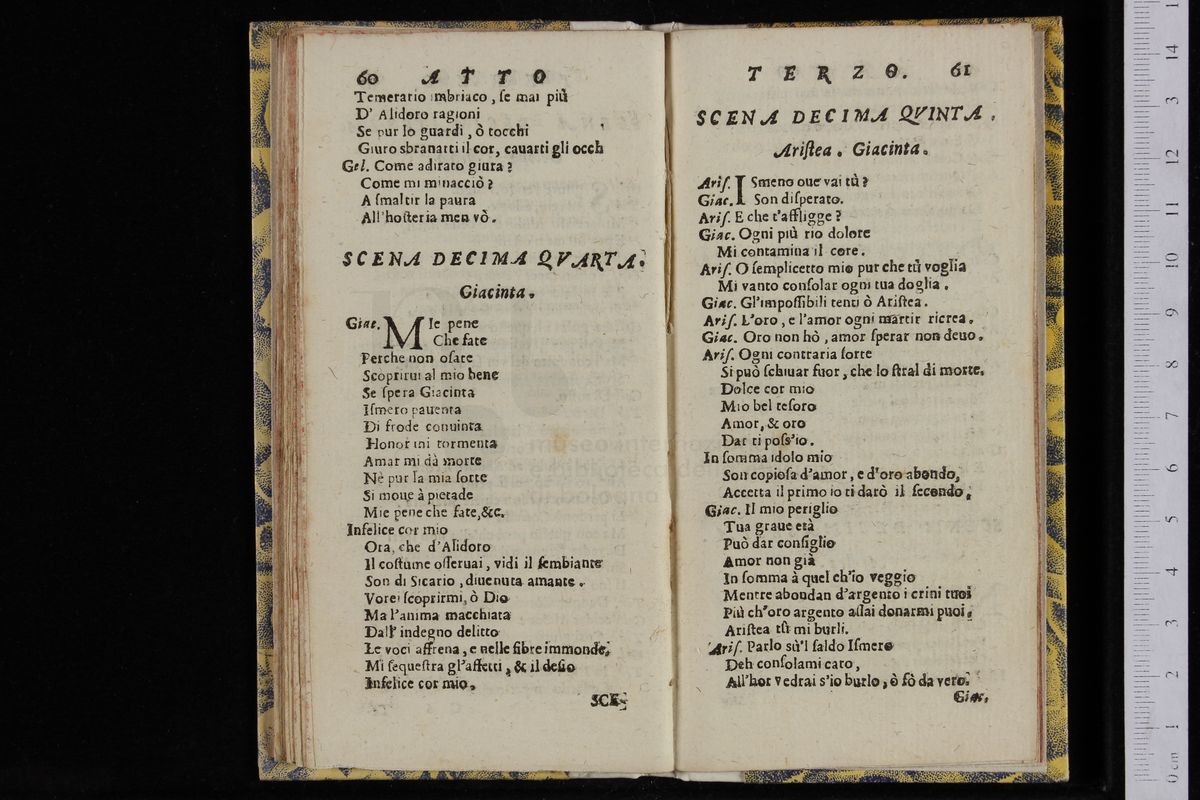 60 ATTO
Temerario imbriaco, ſe mai più
D' Alidoro ragioni
Se pur lo guardi, ò tocchi
Giuro sbranarti il cor, cauarti gli occh
Gel. Come adirato giura?
Come mi minacciò?
A ſmaltir la paura
All'hoſteria men vò.
SCENA DECIMA QVARTA.
Giacinta.
Giac. MIe pene
Che fate
Perche non oſate
Scoprirui al mio bene
Se ſpera Giacinta
Iſmero pauenta
Di frode conuinta
Honor mi tormenta
Amar mi dà morte
Nè pur la mia ſorte
Si moue à pietade
Mie pene che fate,&c.
Infelice cor mio
Ora, che d'Alidoro
Il coſtume oſſeruai, vidi il ſembiante
Son di Sicario, diuenuta amante.
Vorei ſcoprirmi, ò Dio
Ma l'anima macchiata
Dall' indegno delitto
Le voci affrena, e nelle fibre immonde,
Mi ſequeſtra gl'affetti, & il deſio
Infelice cor mio.
SCE-
TERZO. 61
SCENA DECIMA QVINTA.
Ariſtea. Giacinta.
Ariſ. ISmeno oue vai tù?
Giac. Son diſperato.
Ariſ. E che t'affligge?
Giac. Ogni più rio dolore
Mi contamina il core.
Ariſ. O ſemplicetto mio pur che tù voglia
Mi vanto conſolar ogni tua doglia.
Giac. Gl'impoſſibili tenti ò Ariſtea.
Ariſ. L'oro, e l'amor ogni martir ricrea.
Giac. Oro non hò, amor ſperar non deuo.
Ariſ. Ogni contraria ſorte
Si può ſchiuar fuor, che lo ſtral di morte.
Dolce cor mio
Mio bel teſoro
Amor, & oro
Dar ti poſs'io.
In ſomma idolo mio
Son copioſa d'amor, e d'oro abondo,
Accetta il primo io ti darò il ſecondo.
Giac. Il mio periglio
Tua graue età
Può dar conſiglio
Amor non già
In ſomma à quel ch'io veggio
Mentre abondan d'argento i crini tuoi
Più ch'oro argento aſſai donarmi puoi.
Ariſtea tù mi burli.
Ariſ. Parlo sù'l ſaldo Iſmero
Deh conſolami caro,
All'hor vedrai s'io burlo, ò fò da vero.
Giac.